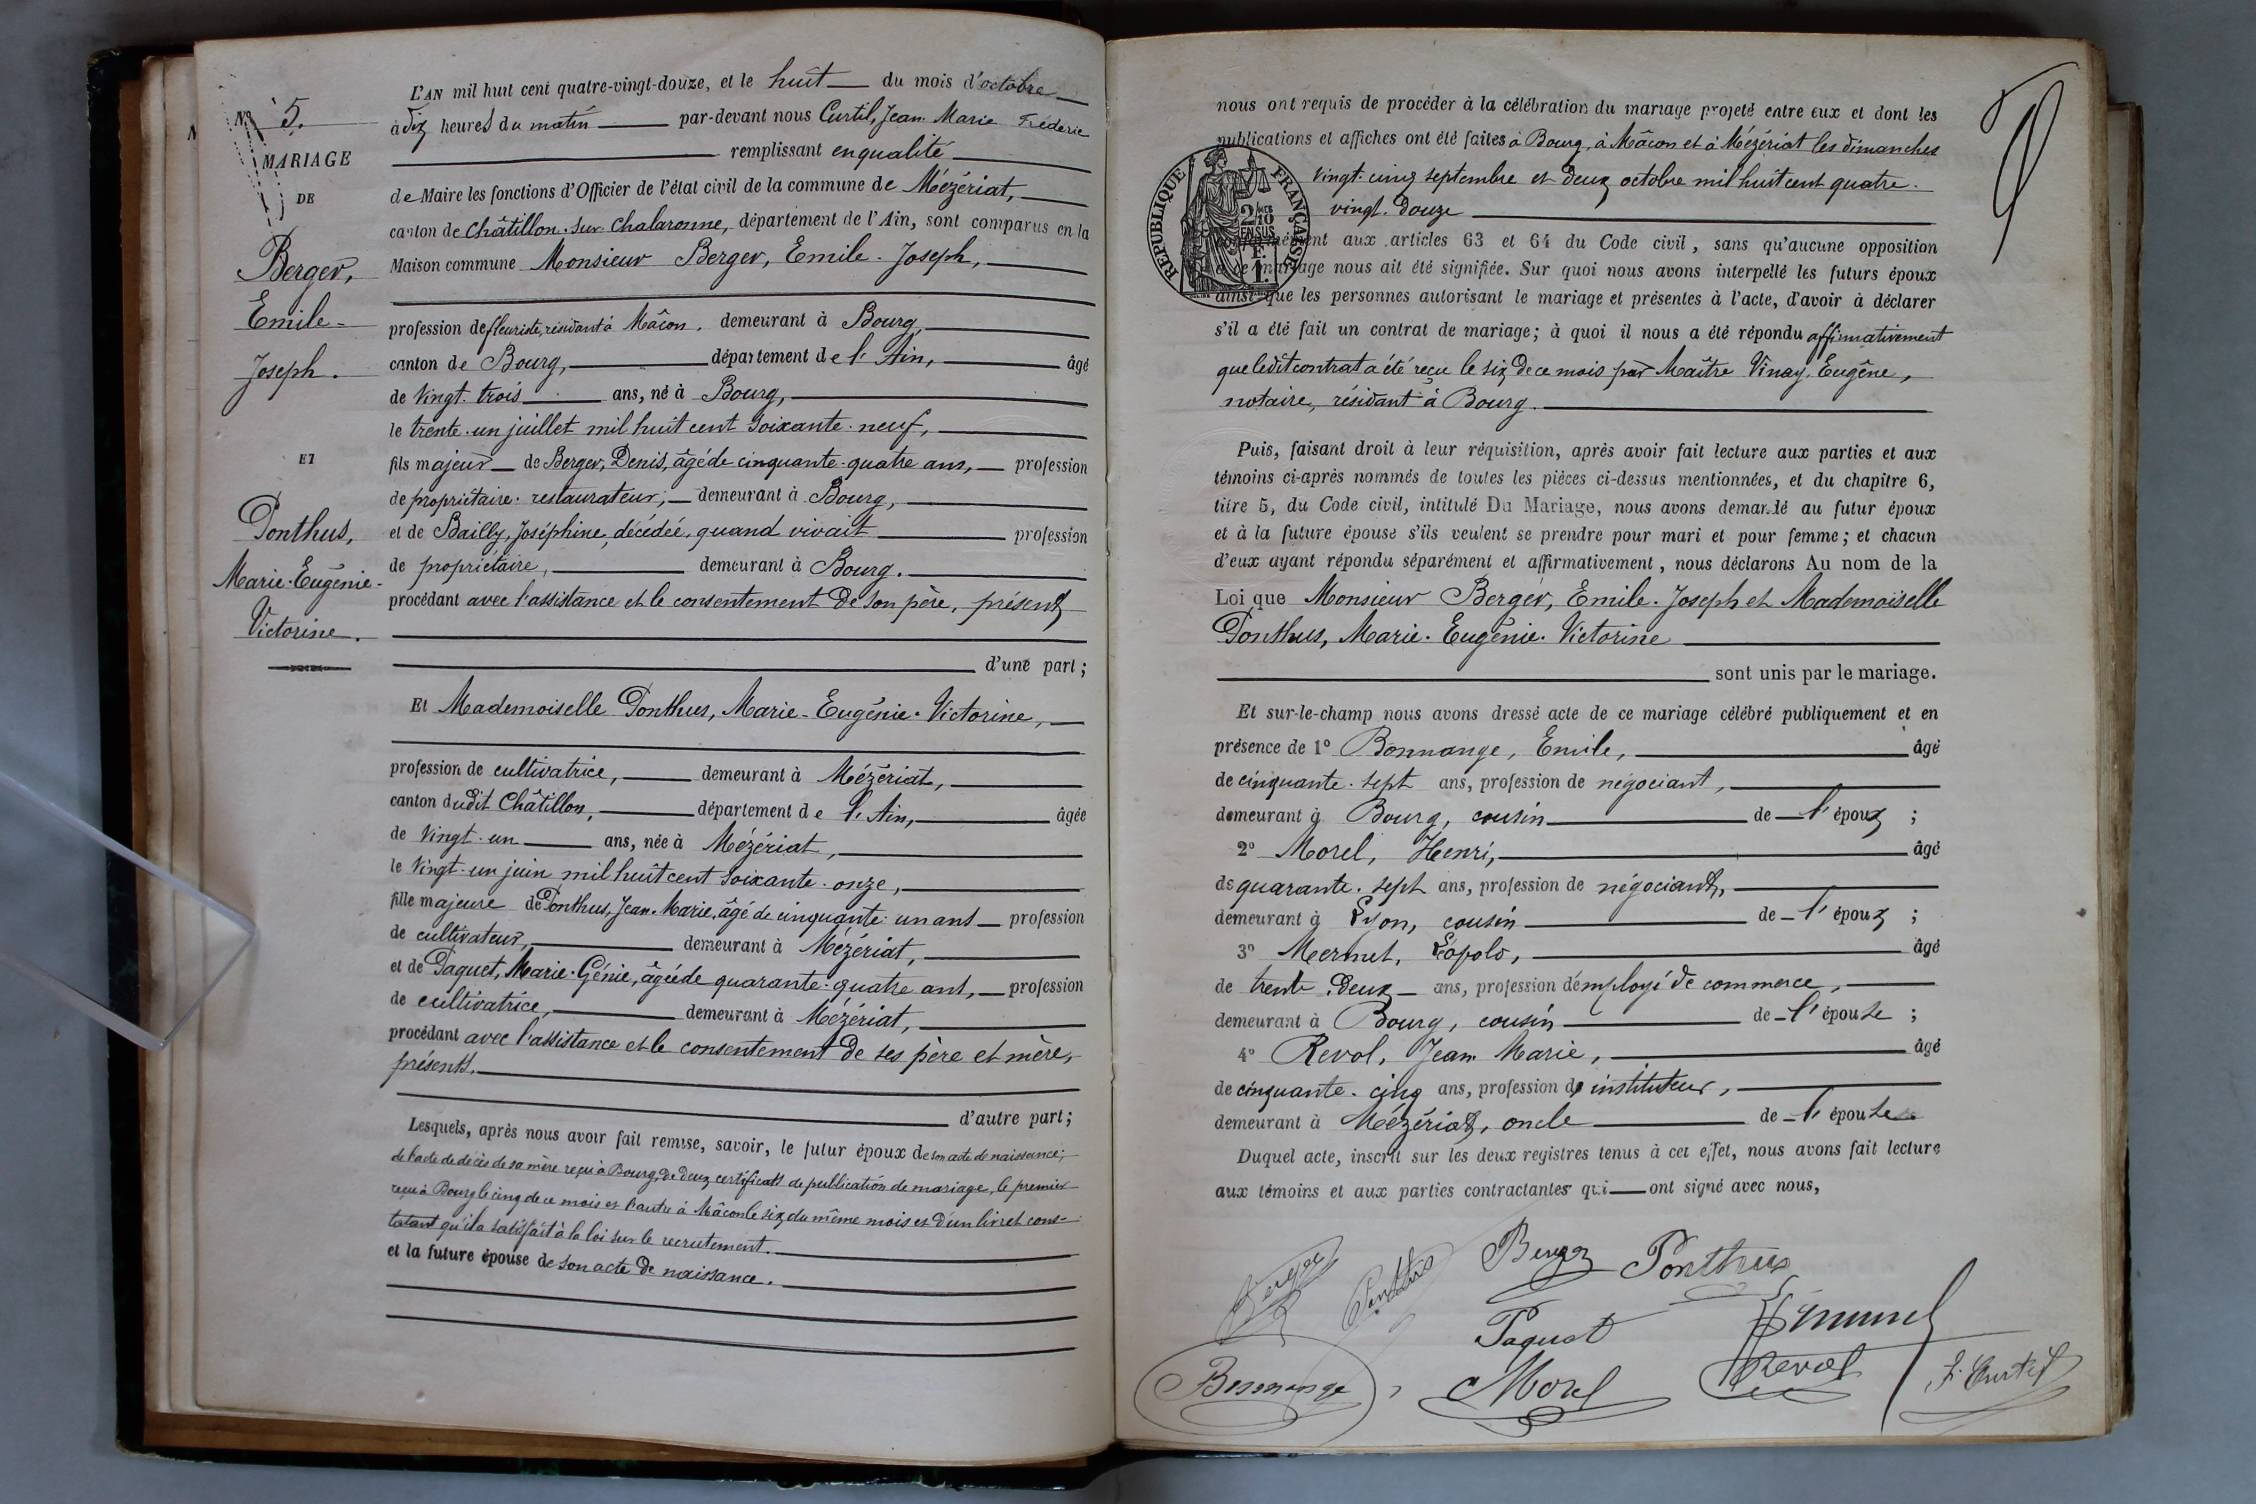 N° 5.
MARIAGE
DE
Berger,
Emile-
Joseph.
ET
Ponthus,
Marie-Eugénie-
Victorine.
L'AN mil huit cent quatre-vingt-douze, et le huit du mois d'octobre
à dix heures du matin par-devant nous Curtil, Jean Marie Fréderic
remplissant en qualité
de Maire les fonctions d'Officier de l'état civil de la commune de Mézériat,
canton de Châtillon-sur-Chalaronne, département de l'Ain, sont comparus en la
Maison commune Monsieur Berger, Emile-Joseph,
profession de fleuriste, résidant à Mâcon, demeurant à Bourg,
canton de Bourg, département de l'Ain, âgé
de vingt-trois ans, né à Bourg,
le trente-un juillet mil huit cent soixante-neuf,
fils majeur de Berger, Denis, âgé de cinquante-quatre ans, profession
de propriétaire-restaurateur, demeurant à Bourg,
et de Bailly, Joséphine, décédée, quand vivait profession
de propriétaire, demeurant à Bourg.
procédant avec l'assistance et le consentement de son père, présent
d'une part;
Et Mademoiselle Ponthus, Marie-Eugénie-Victorine,
profession de cultivatrice, demeurant à Mézériat,
canton dudit Châtillon, département de l'Ain, âgée
de vingt-un ans, née à Mézériat,
le vingt-un juin mil huit cent soixante-onze,
fille majeure de Ponthus, Jean-Marie, âgé de cinquante-un ans profession
de cultivateur, demeurant à Mézériat,
et de Paquet, Marie-Génie, âgée de quarante-quatre ans, profession
de cultivatrice, demeurant à Mézériat,
procédant avec l'assistance et le consentement de ses père et mère,
présents.
d'autre part;
Lesquels, après nous avoir fait remise, savoir, le futur époux de son acte de naissance;
de l'acte de décès de sa mère reçu à Bourg, de deux certificats de publication de mariage, le premier
reçu à Bourg le cinq de ce mois et l'autre à Mâcon le six du même mois et d'un livret cons-
tatant qu'il a satisfait à la loi sur le recrutement.
et la future épouse de son acte de naissance.
nous ont requis de procéder à la célébration du mariage projeté entre eux et dont les
publications et affiches ont été faites à Bourg, à Mâcon et à Mézériat les dimanches
vingt-cinq septembre et deux octobre mil huit cent quatre-
vingt-douze
RÉPUBLIQUE FRANÇAISE
2/10 EN SUS
1 F.
conformément aux articles 63 et 64 du Code civil, sans qu'aucune opposition
à ce mariage nous ait été signifiée. Sur quoi nous avons interpellé les futurs époux
ainsi que les personnes autorisant le mariage et présentes à l'acte, d'avoir à déclarer
s'il a été fait un contrat de mariage; à quoi il nous a été répondu affirmativement
que ledit contrat a été reçu le six de ce mois par Maître Vinay, Eugène,
notaire, résidant à Bourg.
Puis, faisant droit à leur réquisition, après avoir fait lecture aux parties et aux
témoins ci-après nommés de toutes les pièces ci-dessus mentionnées, et du chapitre 6,
titre 5, du Code civil, intitulé Du Mariage, nous avons demandé au futur époux
et à la future épouse s'ils veulent se prendre pour mari et pour femme; et chacun
d'eux ayant répondu séparément et affirmativement, nous déclarons Au nom de la
Loi que Monsieur Berger, Emile-Joseph et Mademoiselle
Ponthus, Marie-Eugénie-Victorine
sont unis par le mariage.
Et sur-le-champ nous avons dressé acte de ce mariage célébré publiquement et en
présence de 1° Bonnange, Emile, âgé
de cinquante-sept ans, profession de négociant,
demeurant à Bourg, cousin de l'époux;
2° Morel, Henri, âgé
de quarante-sept ans, profession de négociant,
demeurant à Lyon, cousin de l'époux;
3° Mermet, Léopold, âgé
de trente-deux ans, profession d'employé de commerce,
demeurant à Bourg, cousin de l'épouse;
4° Revol, Jean Marie, âgé
de cinquante-cinq ans, profession de instituteur,
demeurant à Mézériat, oncle de l'épouse.
Duquel acte, inscrit sur les deux registres tenus à cet effet, nous avons fait lecture
aux témoins et aux parties contractantes qui ont signé avec nous,
Berger Ponthus Berger Ponthus
Paquet
Bonnange Morel Revol F. Curtil